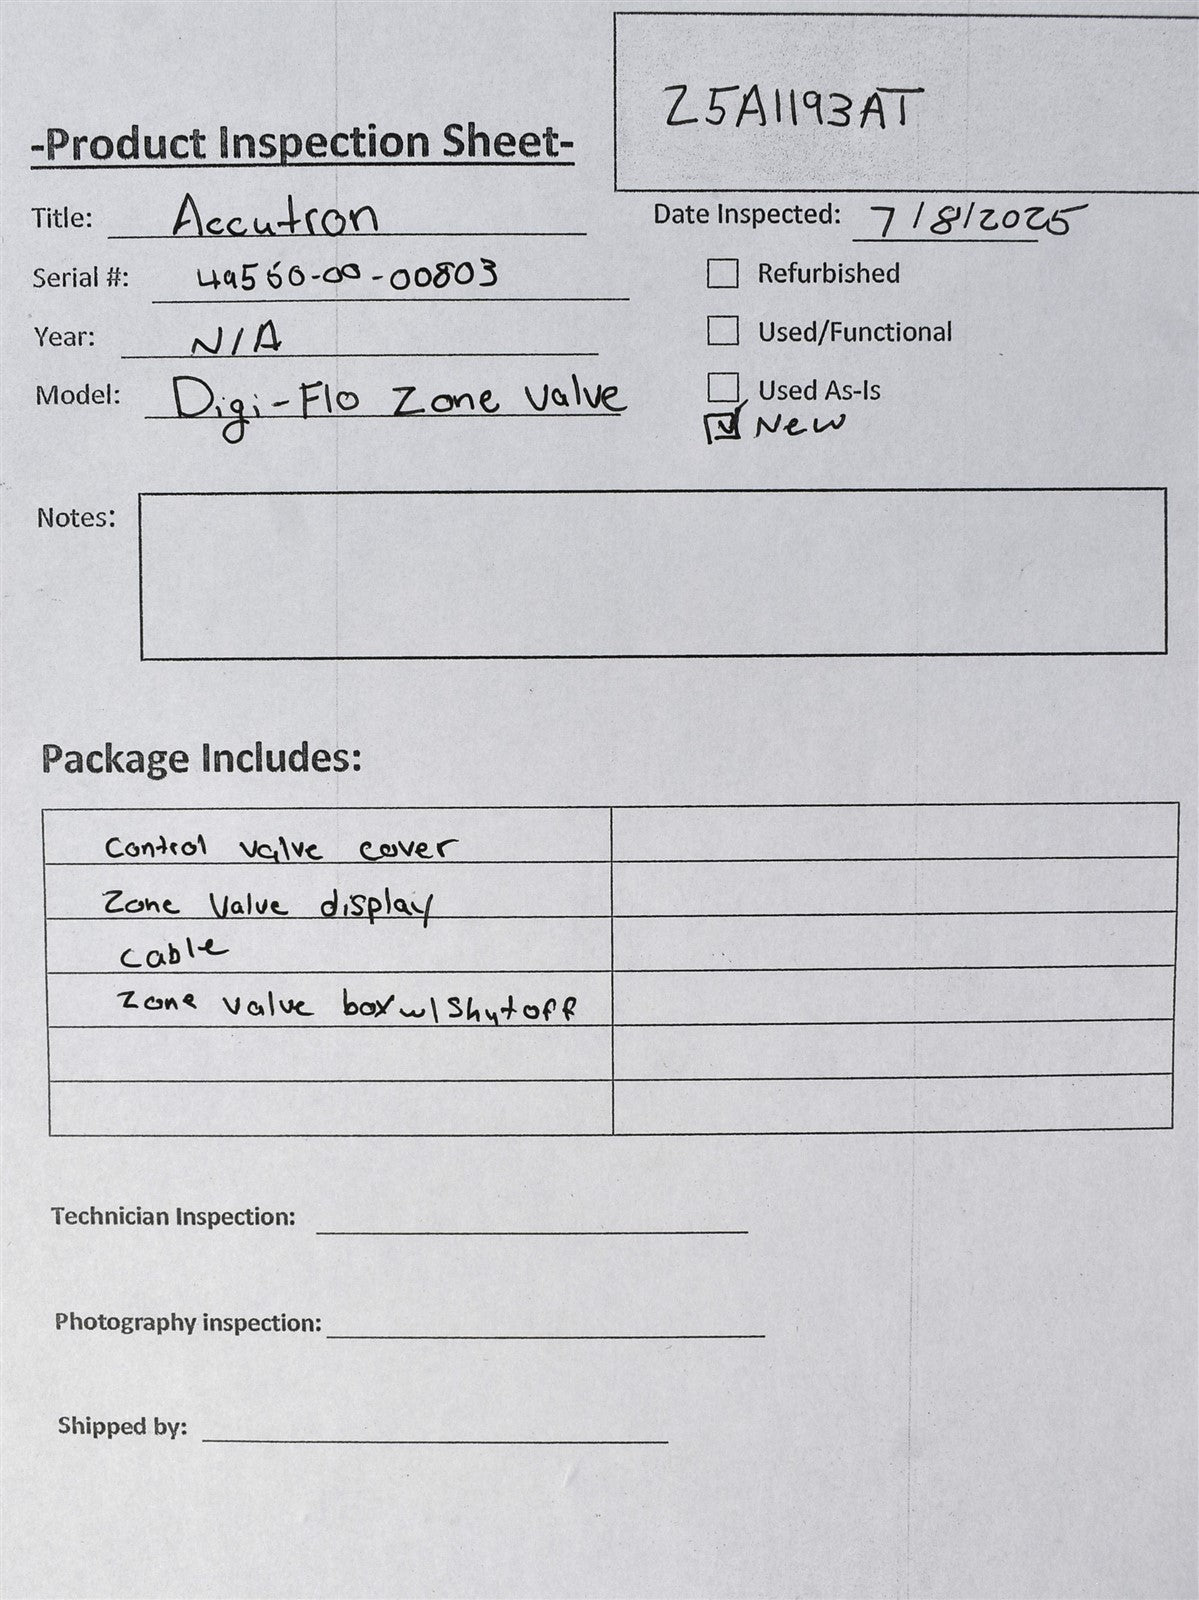 Z5A1193AT
-Product Inspection Sheet-
Title: Accutron
Date Inspected: 7/8/2025
Serial #: 49560-00-00803
Refurbished
Year: N/A
Used/Functional
Model: Digi-Flo Zone Valve
Used As-Is
New
Notes:
Package Includes:
Control valve cover
Zone Valve display
Cable
Zone valve box w/ Shutoff
Technician Inspection:
Photography inspection:
Shipped by: